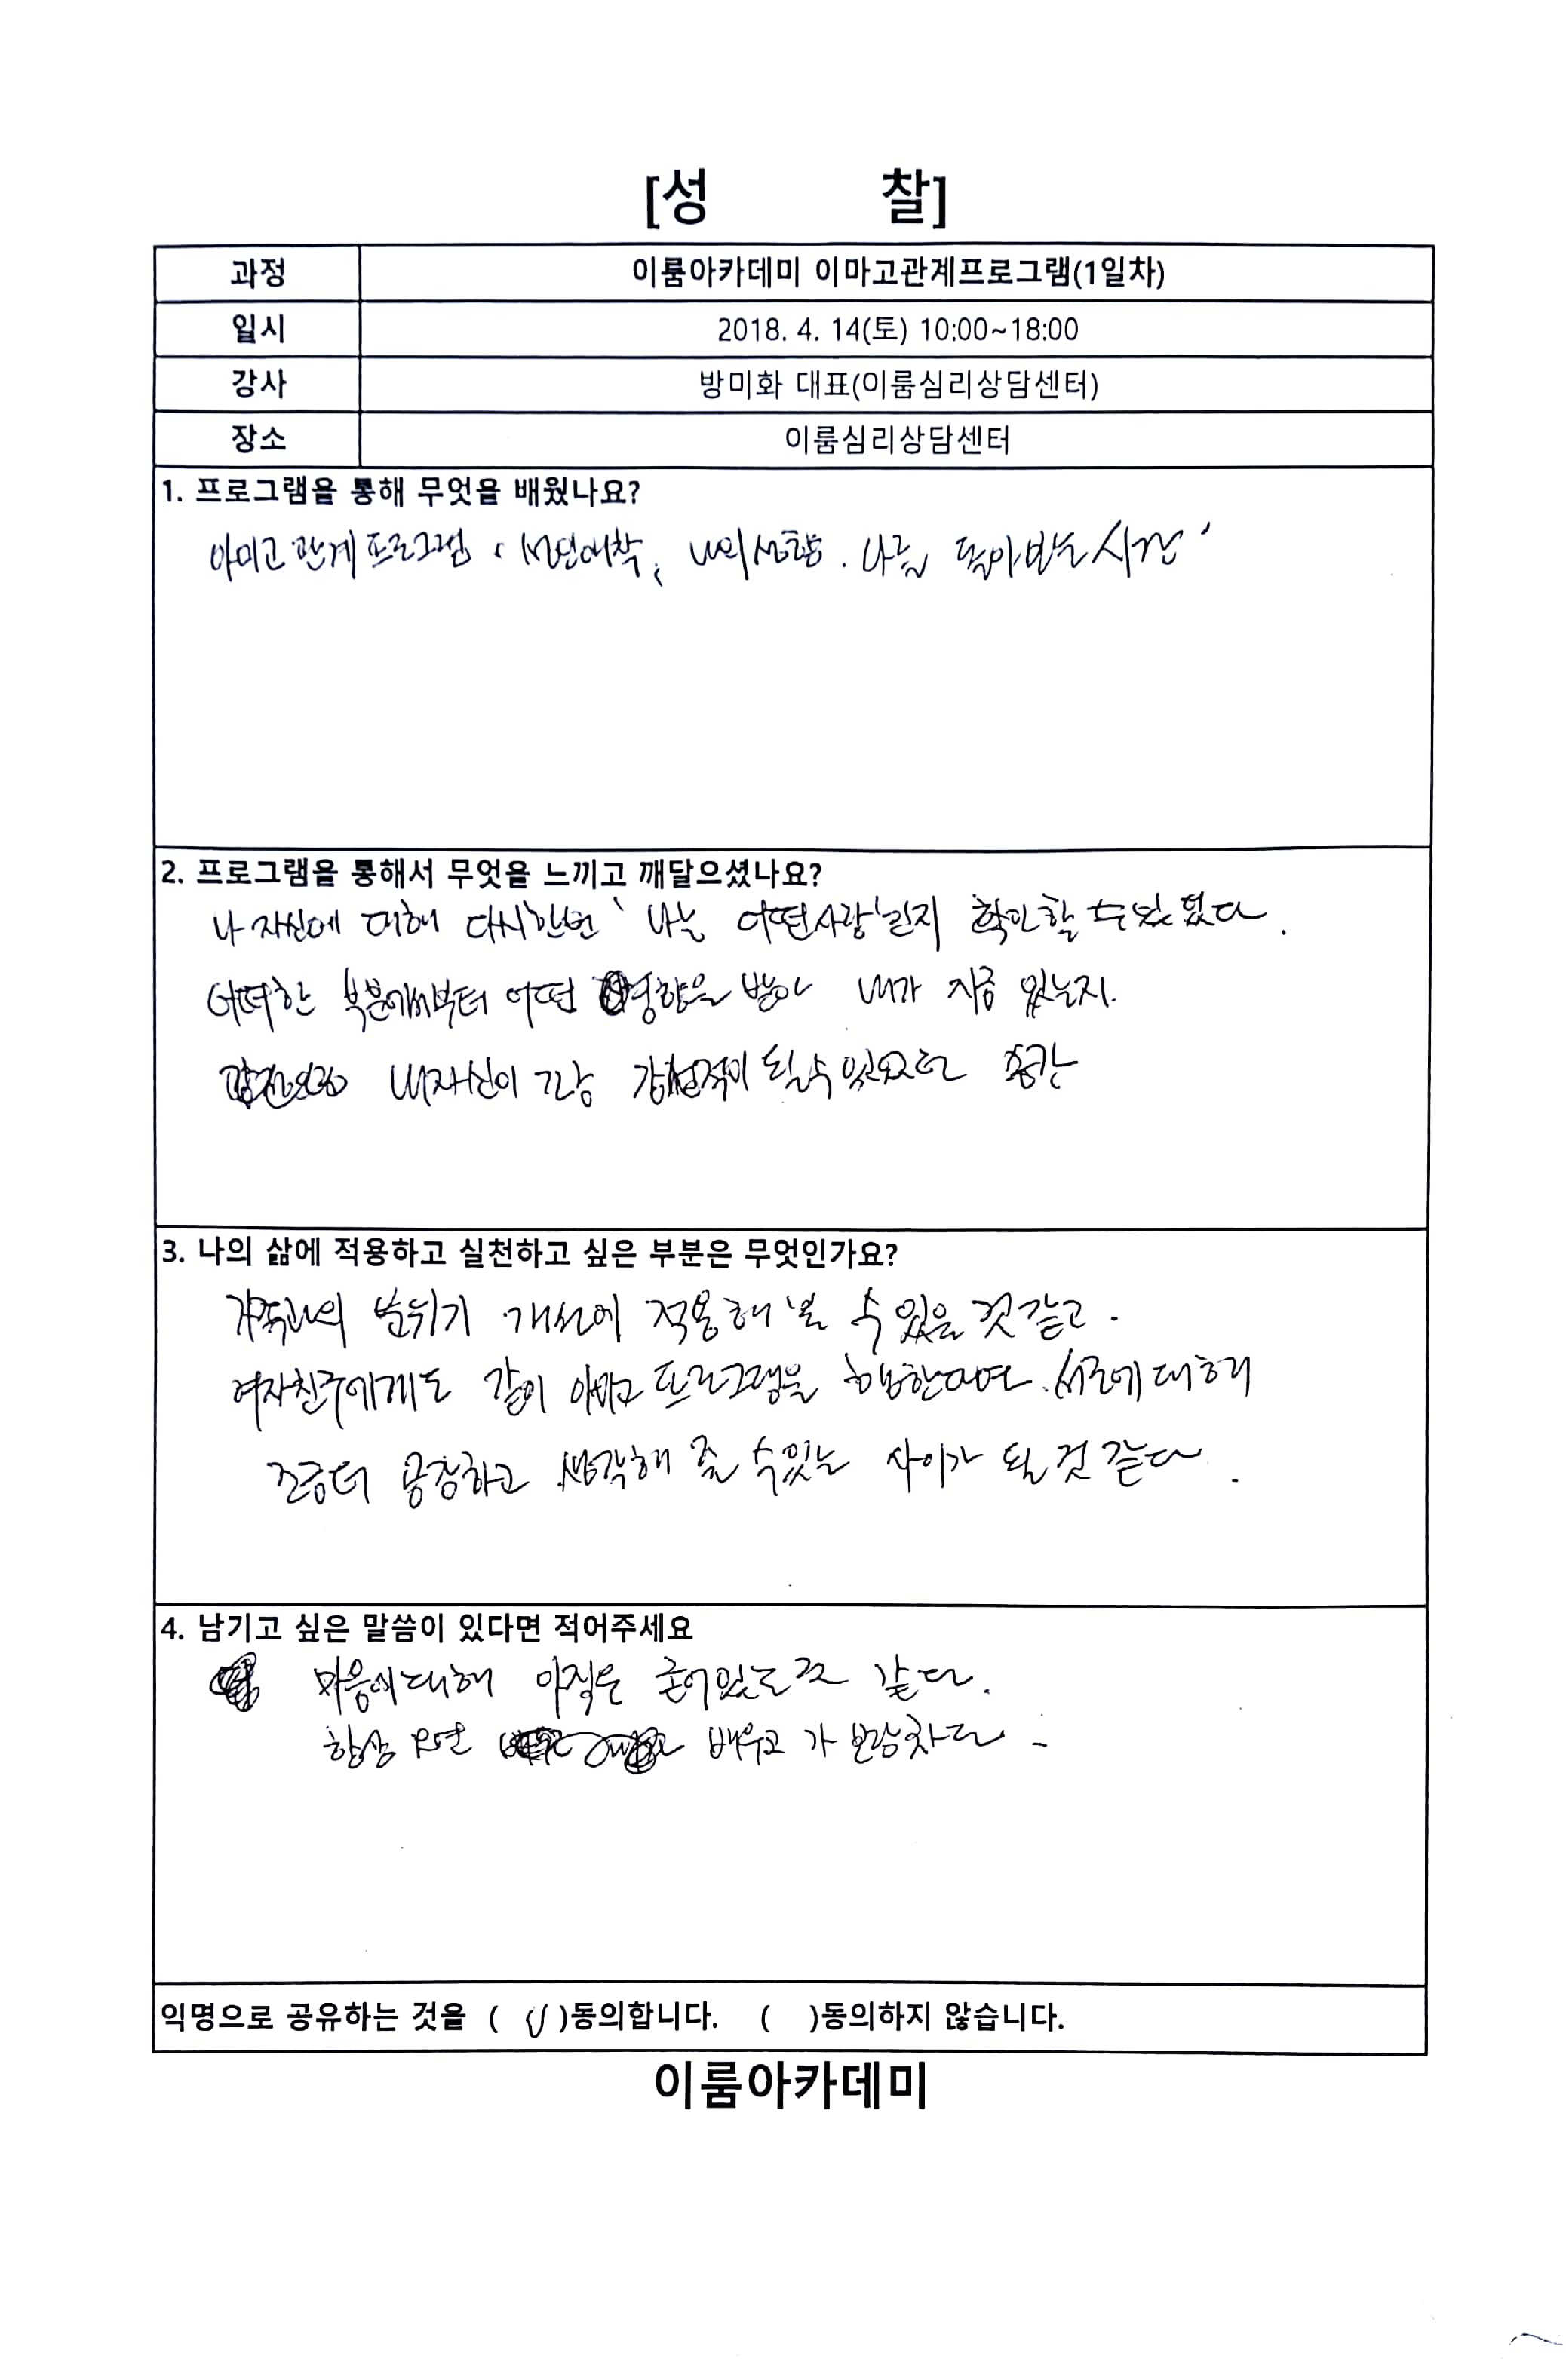 [성 찰]
과정 이룸아카데미 이마고관계프로그램(1일차)
일시 2018. 4. 14(토) 10:00~18:00
강사 방미화 대표(이룸심리상담센터)
장소 이룸심리상담센터
1. 프로그램을 통해 무엇을 배웠나요?
아미고 관계 프로그램 나의 성향. 나를 돌아보는 시간
2. 프로그램을 통해서 무엇을 느끼고 깨달으셨나요?
나 자신에 대해 다시한번 '나는 어떤사람'인지 확인할 수 있
어떠한 부분에서부터 어떤 영향을 받아 내가 지금 있는지.
내자신이 가장 될수 있었던 공간
3. 나의 삶에 적용하고 실천하고 싶은 부분은 무엇인가요?
가족과의 분위기 개선에 적용해 볼 수 있을 것 같고.
여자친구에게도 같이 프로그램을 서로에 대해
조금더 공감하고 생각해 줄 수있는 사이가 될 것 같다.
4. 남기고 싶은 말씀이 있다면 적어주세요
마음에 대해 아직은 같다.
항상 오면 배우고 가 보람차다
익명으로 공유하는 것을 ( √ )동의합니다. ( )동의하지 않습니다.
이룸아카데미